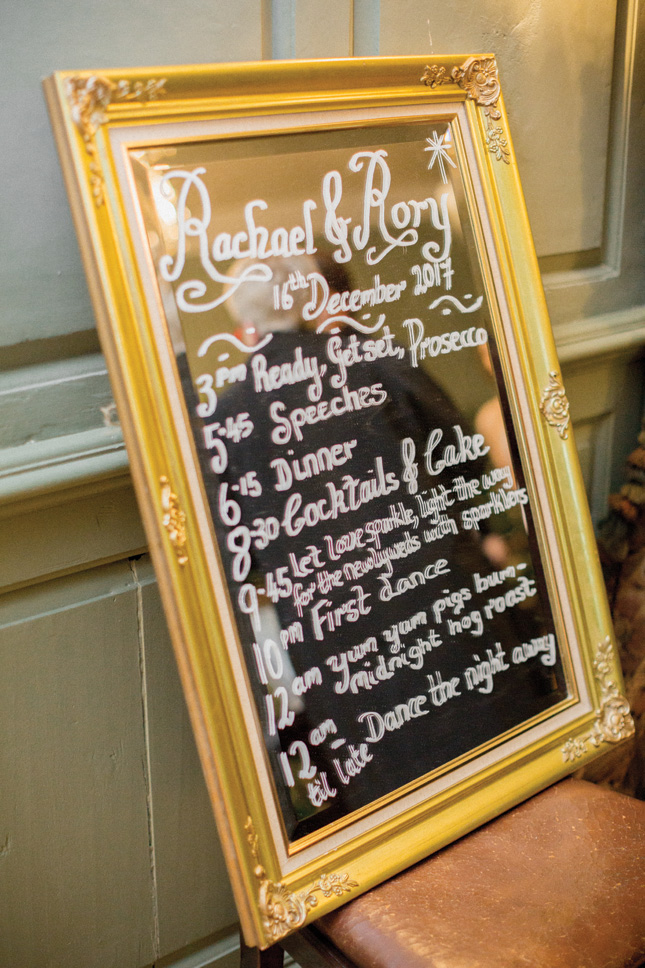 Rachael & Rory
16th December 2017
3pm Ready, Get set, Prosecco
5·45 Speeches
6·15 Dinner
8·30 Cocktails & Cake
9·45 Let love sparkle, light the way
for the newlyweds with sparklers
10pm First dance
12am yum yum pigs bum -
midnight hog roast
12am - Dance the night away
til late